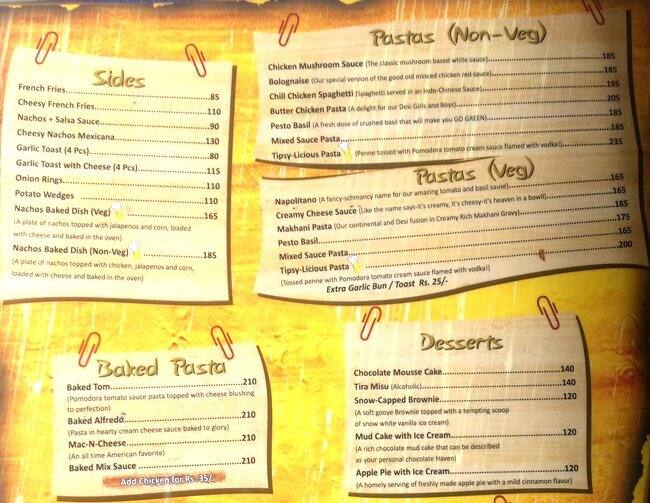 Sides
French Fries.....85
Cheesy French Fries.....110
Nachos + Salsa Sauce.....90
Cheesy Nachos Mexicana.....130
Garlic Toast (4 Pcs).....80
Garlic Toast with Cheese (4 Pcs).....115
Onion Rings.....110
Potato Wedges.....110
Nachos Baked Dish (Veg).....165
(A plate of nachos topped with jalapenos and corn, loaded
with cheese and baked in the oven)
Nachos Baked Dish (Non-Veg).....185
(A plate of nachos topped with chicken, jalapenos and corn,
loaded with cheese and baked in the oven)
Pastas (Non-Veg)
Chicken Mushroom Sauce (The classic mushroom based white sauce).....185
Bolognaise (Our special version of the good old minced chicken red sauce).....185
Chili Chicken Spaghetti (Spaghetti served in an Indo-Chinese Sauce).....195
Butter Chicken Pasta (A delight for our Desi Girls and Boys).....205
Pesto Basil (A fresh dose of crushed basil that will make you GO GREEN).....185
Mixed Sauce Pasta.....185
Tipsy-Licious Pasta (Penne tossed with Pomodora tomato cream sauce flamed with vodka!).....235
Pastas (Veg)
Napolitano (A fancy-schmancy name for our amazing tomato and basil sause).....165
Creamy Cheese Sauce (Like the name says-it's creamy, it's cheesy-it's heaven in a bowl).....165
Makhani Pasta (Our continental and Desi fusion in Creamy Rich Makhani Gravy).....185
Pesto Basil.....175
Mixed Sauce Pasta.....165
Tipsy-Licious Pasta.....200
(Tossed penne with Pomodora tomato cream sauce flamed with vodka!)
Extra Garlic Bun / Toast Rs. 25/-
Baked Pasta
Baked Tom.....210
(Pomodora tomato sauce pasta topped with cheese blushing
to perfection)
Baked Alfredo.....210
(Pasta in hearty cream cheese sauce baked to glory)
Mac-N-Cheese.....210
(An all time American favorite)
Baked Mix Sauce.....210
Add Chicken for Rs. 35/-
Desserts
Chocolate Mousse Cake.....140
Tira Misu (Alcoholic).....140
Snow-Capped Brownie.....120
(A soft gooye Brownie topped with a tempting scoop
of snow white vanilla ice cream)
Mud Cake with Ice Cream.....120
(A rich chocolate mud cake that can be described
as your personal chocolate Haven)
Apple Pie with Ice Cream.....120
(A homely serving of freshly made apple pie with a mild cinnamon flavor)